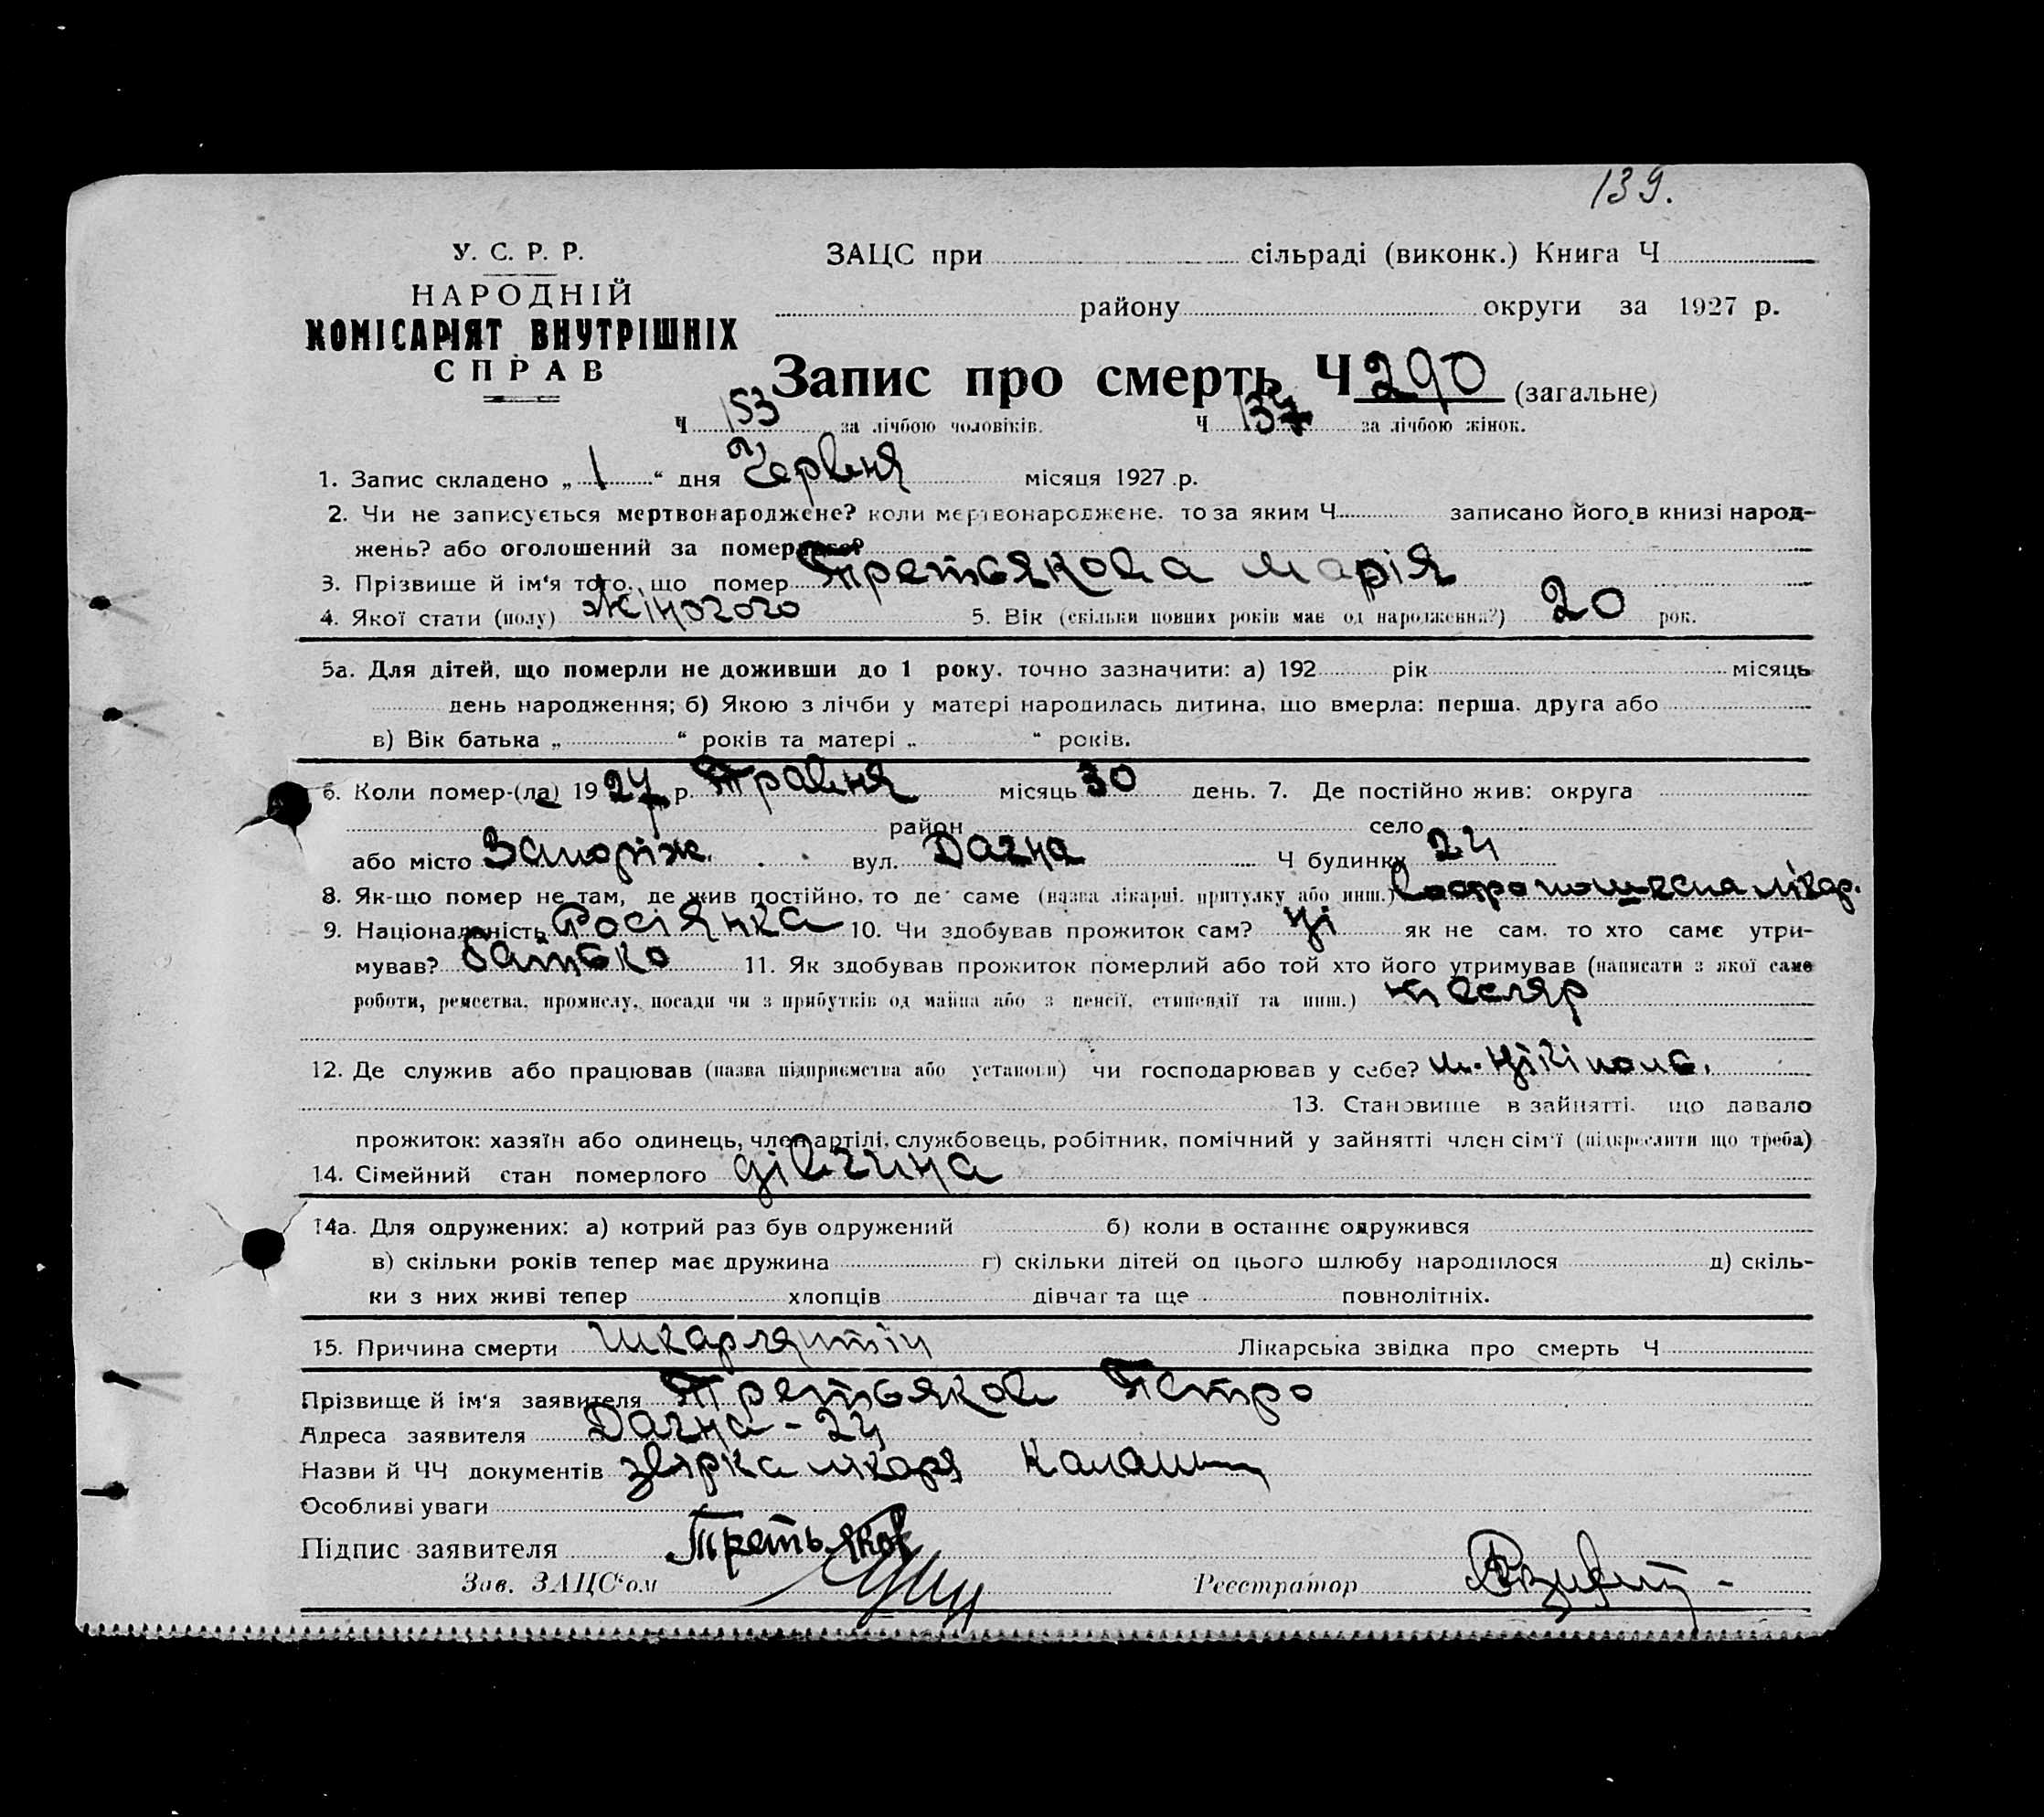 139.
У. С. Р. Р.
НАРОДНІЙ
КОМІСАРІЯТ ВНУТРІШНІХ
СПРАВ
ЗАЦС при сільраді (виконк.) Книга Ч
району округи за 1927 р.
Запис про смерть Ч 290 (загальне)
Ч 153 за лічбою чоловіків. Ч 137 за лічбою жінок.
1. Запис складено „ 1 “ дня Червня місяця 1927 р.
2. Чи не записується мертвонароджене? коли мертвонароджене, то за яким Ч записано його в книзі народ-
жень? або оголошений за померлого?
3. Прізвище й ім'я того, що помер Третьякова Марія
4. Якої стати (полу) Жіночого 5. Вік (скільки повних років має од народження?) 20 рок.
5а. Для дітей, що померли не доживши до 1 року, точно зазначити: а) 192 рік місяць
день народження; б) Якою з лічби у матері народилась дитина, що вмерла: перша, друга або
в) Вік батька „ “ років та матері „ “ років.
6. Коли помер-(ла) 1927 р. Травня місяць 30 день. 7. Де постійно жив: округа
район село
або місто Запоріж. вул. Дачна Ч будинку 24
8. Як-що помер не там, де жив постійно, то де саме (назва лікарні, притулку або инш.) лікар.
9. Національність Росіянка 10. Чи здобував прожиток сам? ні як не сам, то хто саме утри-
мував? батько 11. Як здобував прожиток померлий або той хто його утримував (написати з якої саме
роботи, ремества, промислу, посади чи з прибутків од майна або з пенсії, стипендії та инш.) тесляр
12. Де служив або працював (назва підприємства або установи) чи господарював у себе? м. Нікіполь.
13. Становище в зайнятті, що давало
прожиток: хазяїн або одинець, член артілі, службовець, робітник, помічний у зайнятті член сім'ї (підкреслити що треба)
14. Сімейний стан померлого дівчина
14а. Для одружених: а) котрий раз був одружений б) коли в останнє одружився
в) скільки років тепер має дружина г) скільки дітей од цього шлюбу народилося д) скіль-
ки з них живі тепер хлопців дівчат та ще повнолітніх.
15. Причина смерти Шкарлятін Лікарська звідка про смерть Ч
Прізвище й ім'я заявителя Третьяков Петро
Адреса заявителя Дачна - 24
Назви й ЧЧ документів лікаря
Особливі уваги
Підпис заявителя Третьяков
Зав. ЗАЦС'ом Реєстратор